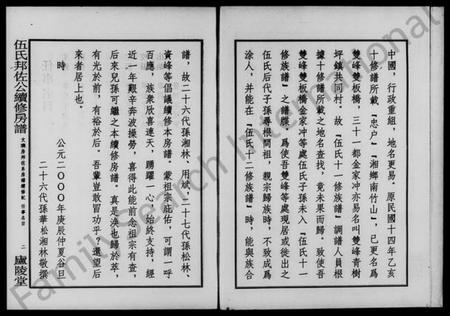 中國，行政重組，地名更易。原民國十四年乙亥
十修譜所載『忠户』『湘鄉南竹山』，已更名爲
雙峰雙板橋，三十一都金家冲亦易名叫雙峰青樹
坪鎮共同村。故『伍氏十一修族譜』調譜人員根
據十修譜所載之地名查找，竟未果而歸，致使吾
雙峰雙板橋金家冲等處伍氏子孫未入『伍氏十一
修族譜』之譜牒。爲使吾雙峰等處現居或徙出之
伍氏后代子孫尋根問祖，親宗歸族時，不致成爲
涂人，并能在『伍氏十二修族譜』時，能與族合
譜，故二十六代孫湘林、用斌，二十七代孫松林、
資峰等倡議續修本房譜。蒙祖宗庇佑，可謂一呼
百應，族衆欣喜連天，踴躍一心，始終支持，經
近一年艱辛奔波操勞，喜得此能前念祖宗有查，
后來兒孫可繼之本續修房譜。真是涣也歸於萃，
有光於前，有裕於后。吾輩豈敢習功乎，還望后
來者居上也。
時
公元二000年庚辰仲夏谷旦
二十六代孫華松湘林敬撰
伍氏邦佐公續修房譜
二
廬陵堂
FamilySearch International